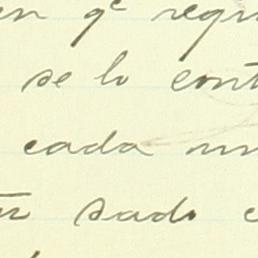 en qe requ
se lo cont
cada un
sado c